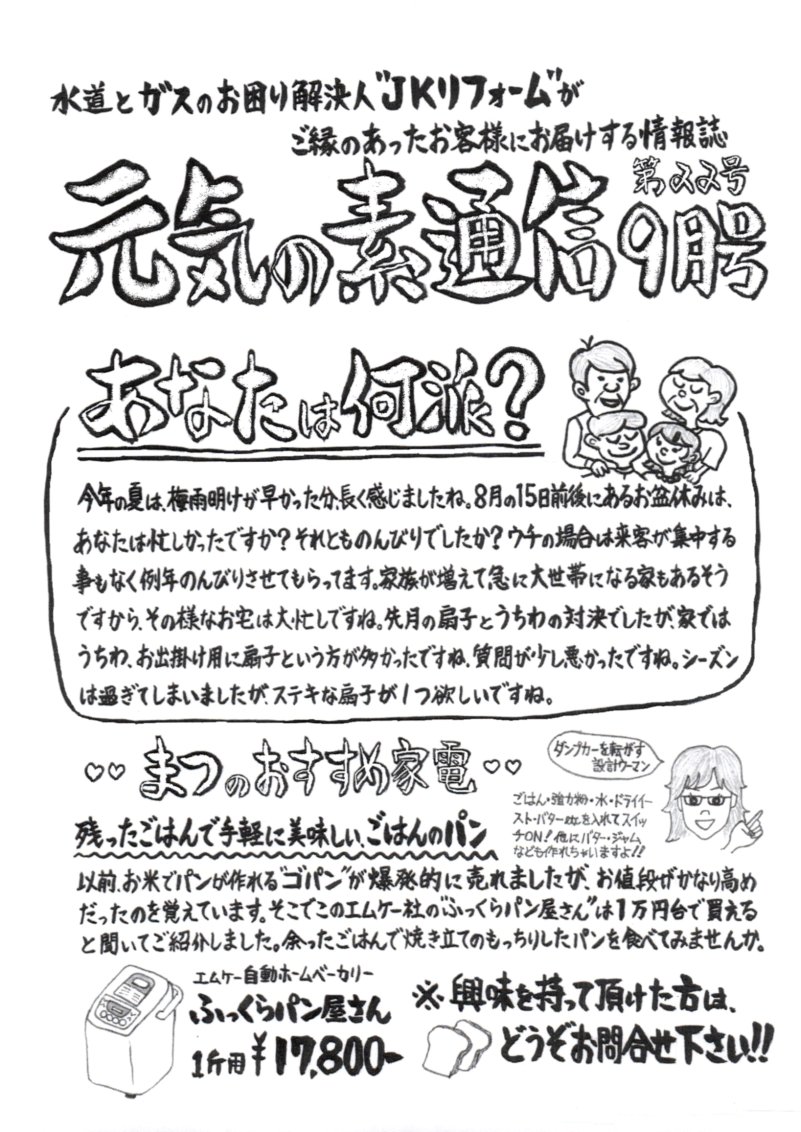 水道とガスのお困り解決人"JKリフォーム"が
ご縁のあったお客様にお届けする情報誌
元気の素通信
第22号
9月号
あなたは何派?
今年の夏は、梅雨明けが早かった分、長く感じましたね。8月の15日前後にあるお盆休みは、
あなたは忙しかったですか?それとものんびりでしたか?ウチの場合は来客が集中する
事もなく例年のんびりさせてもらってます。家族が増えて急に大世帯になる家もあるそう
ですから、その様なお宅は大忙しですね。先月の扇子とうちわの対決でしたが、家では
うちわ、お出掛け用に扇子という方が多かったですね、質問が少し悪かったですね。シーズン
は過ぎてしまいましたが、ステキな扇子が1つ欲しいですね。
♡♡まつのおすすめ家電♡♡
ダンプカーを転がす
設計ウーマン
残ったごはんで手軽に美味しい、ごはんのパン
ごはん・強力粉・水・ドライイー
スト・バターetcを入れてスイッ
チON!他にバター・ジャム
なども作れちゃいますよ!!
以前、お米でパンが作れる"ゴパン"が爆発的に売れましたが、お値段がかなり高め
だったのを覚えています。そこでこのエムケー社の"ふっくらパン屋さん"は1万円台で買える
と聞いてご紹介しました。余ったごはんで焼き立てのもっちりしたパンを食べてみませんか。
エムケー自動ホームベーカリー
ふっくらパン屋さん
1斤用¥17,800-
※興味を持って頂けた方は、
どうぞお問合せ下さい!!